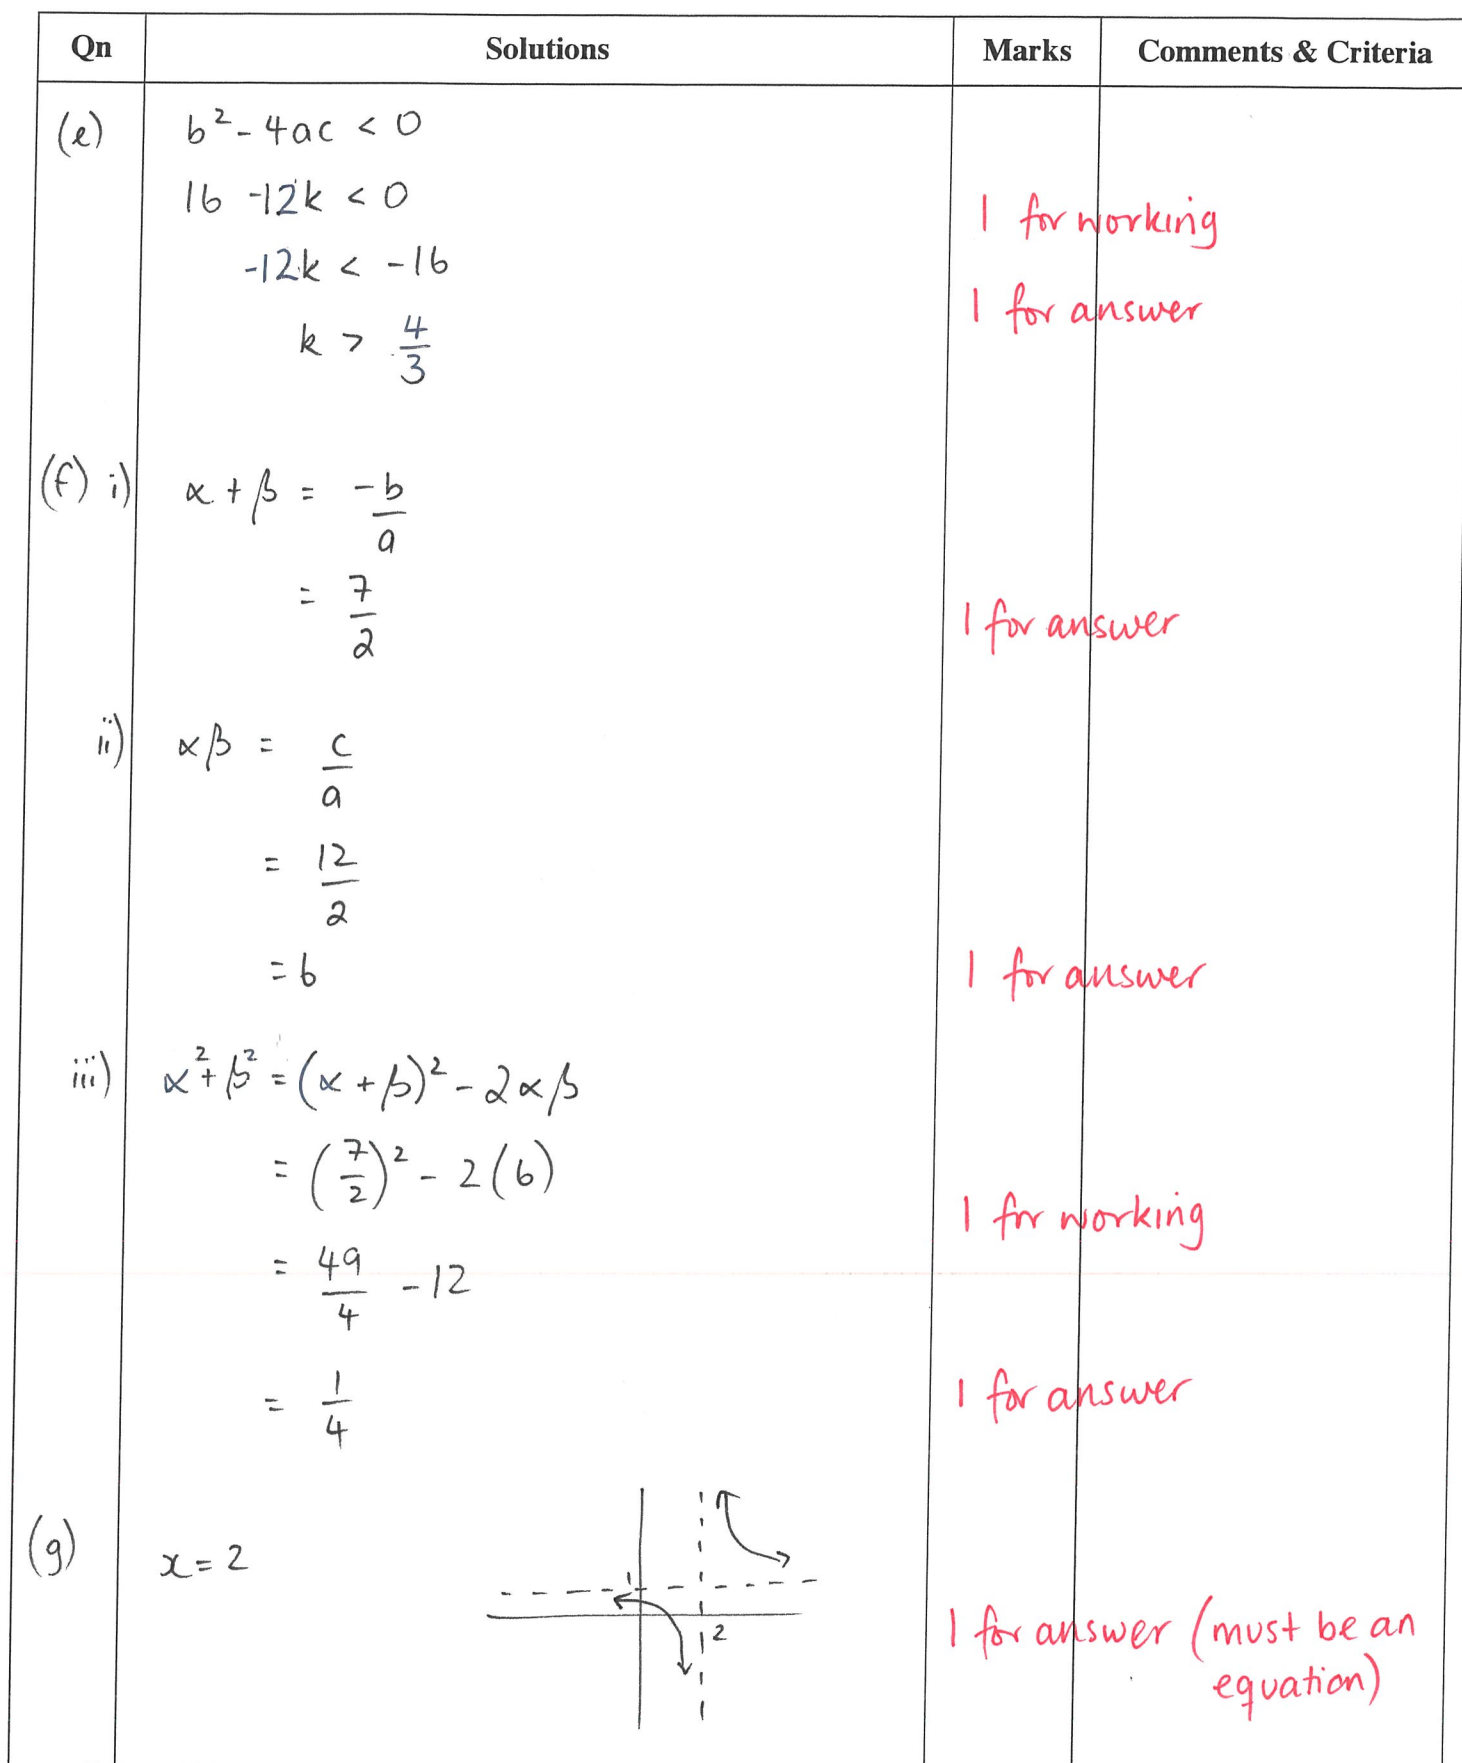 Qn Solutions Marks Comments & Criteria
(e) b² - 4ac < 0
16 - 12k < 0
1 for working
-12k < -16
1 for answer
k > 4/3
(f) i) α + β = -b/a
= 7/2
1 for answer
ii) αβ = c/a
= 12/2
= 6
1 for answer
iii) α² + β² = (α + β)² - 2αβ
= (7/2)² - 2(6)
1 for working
= 49/4 - 12
= 1/4
1 for answer
(g) x = 2
1
2
1 for answer (must be an
equation)